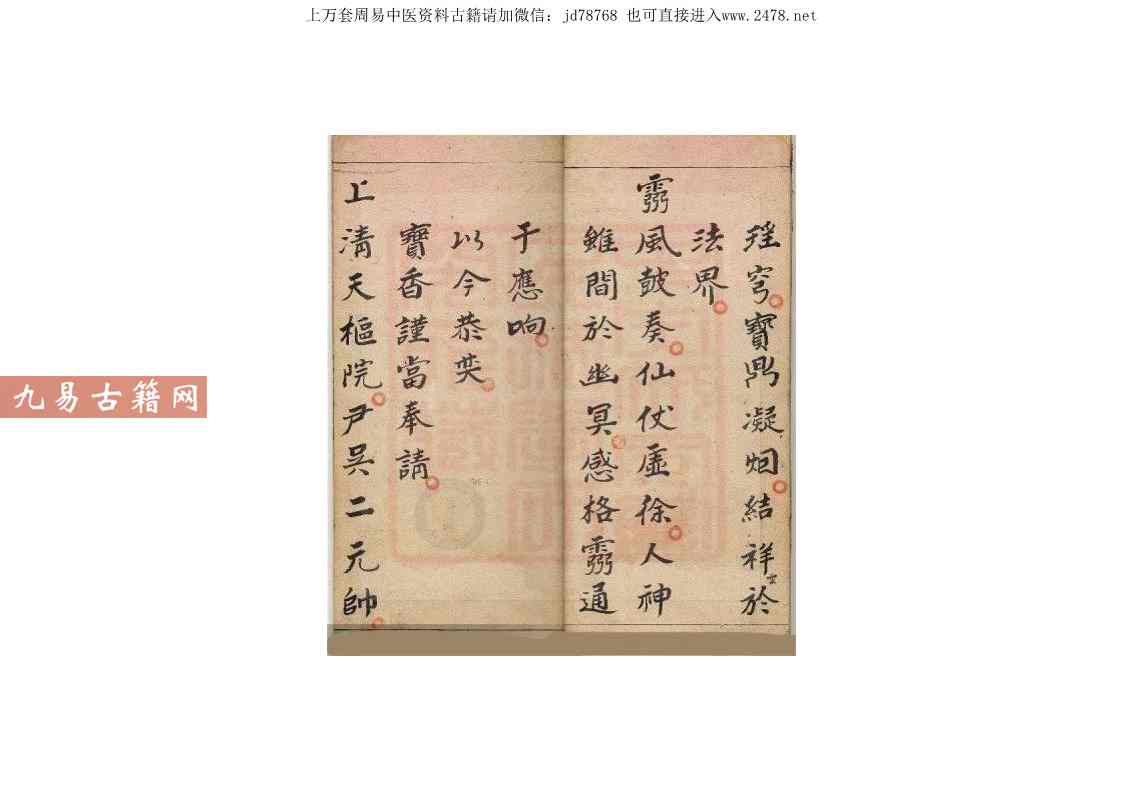 上万套周易中医资料古籍请加微信：jd78768 也可直接进入www.2478.net
九易古籍网
穹寶鼎凝烟結祥於
法界
風鼓奏仙仗虛徐人神
雖間於幽冥感格通
于應响
以今恭
寶香謹當奉請
上清天樞院尹吳二元帥